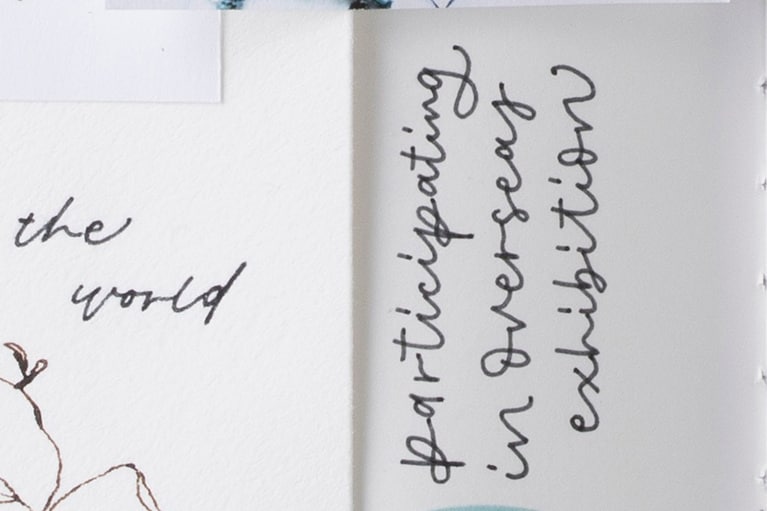 the
world
participating
in overseas
exhibition